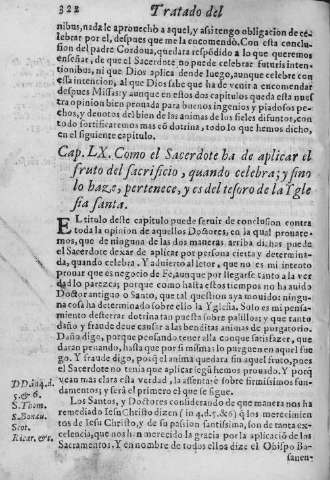 322 Tratado del
nibus, nada le aprouechò a aquel, y assi tengo obligacion de ce-
lebrar por el, despues que me la encomendò. Con esta conclu-
sion del padre Cordoua, quedara respõdido a lo que queremos
enseñar, de que el Sacerdote no puede celebrar futuris inten-
tionibus, ni que Dios aplica dende luego, aunque celebre con
esta intencion, al que Dios sabe que ha de venir a encomendar
despues Missas; y aunque en estos dos capitulos queda esta nues
tra opinion bien prouada para buenos ingenios y piadosos pe-
chos, y deuotos del bien de las animas de los fieles difuntos, con
todo fortificaremos mas cõ dotrina, todo lo que hemos dicho,
en el siguiente capitulo.
Cap. LX. Como el Sacerdote ha de aplicar el
fruto del sacrificio, quando celebra; y sino
lo haze, pertenece, y es del tesoro de la Ygle
sia santa.
EL titulo deste capitulo puede seruir de conclusion contra
toda la opinion de aquellos Doctores, en la qual prouare-
mos, que de ninguna de las dos maneras arriba dichas puede
el Sacerdote dexar de aplicar por persona cierta y determina-
da, quando celebra. Y aduierto al letor, que no es mi intento
prouar que es negocio de Fè, aunque por llegarse tanto a la ver
dad lo parezca; porque como hasta estos tiempos no ha auido
Doctor antiguo o Santo, que tal question aya mouido: ningu-
na cosa ha determinado sobre ello la Yglesia. Solo es mi pensa-
miento desterrar dotrina tan puesta sobre palillos; y que tanto
daño y fraude deue causar a las benditas animas de purgatorio.
Daño digo, porque pensando tener alla conque satisfazer, que
daran penando, hasta que por si misma lo purguen en aquel fue
go. Y fraude digo, porq̃ el anima quedara sin aquel fruto, pues
el Sacerdote no tenia que aplicar segũ hemos prouado. Y porq̃
vean mas clara esta verdad, la assentarè sobre firmissimos fun-
damentos; y serà el primero el que se sigue.
Los Santos, y Doctores considerando de que manera nos ha
remediado Iesu Christo dizen (in 4. d. 5. &6) q̃ los merecimien
tos de Iesu Christo, y de su passion santissima, son de tanta ex-
celencia, que nos han merecido la gracia por la aplicaciõ de los
Sacramentos. Y en nombre de todos ellos dize el Obispo Bo-
nauen-
D D. in 4. d.
5. & 6.
S. Thom.
S. Bonau.
Scot.
Ricar. &s.